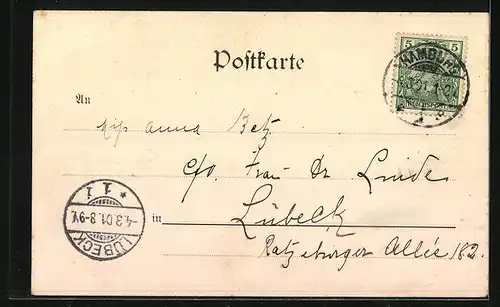 Postkarte
5 5
HAMBURG
1
An
Miss Anna Betz
c/o Frau Dr Linde
in Lübeck
Ratzeburger Allée 182.
* 1 1
-4.3.01.8-9V.
LÜBECK